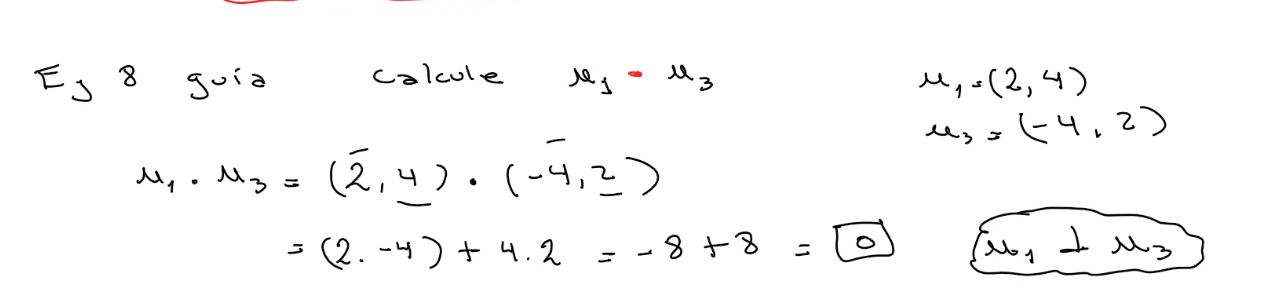 Ej 8 guía calcule u₁ · u₃ u₁=(2,4)
u₃ = (-4, 2)
u₁ . u₃ = (2̅, 4) . (-4̅, 2)
= (2.-4) + 4.2 = -8+8 = 0 u₁ ⊥ u₃